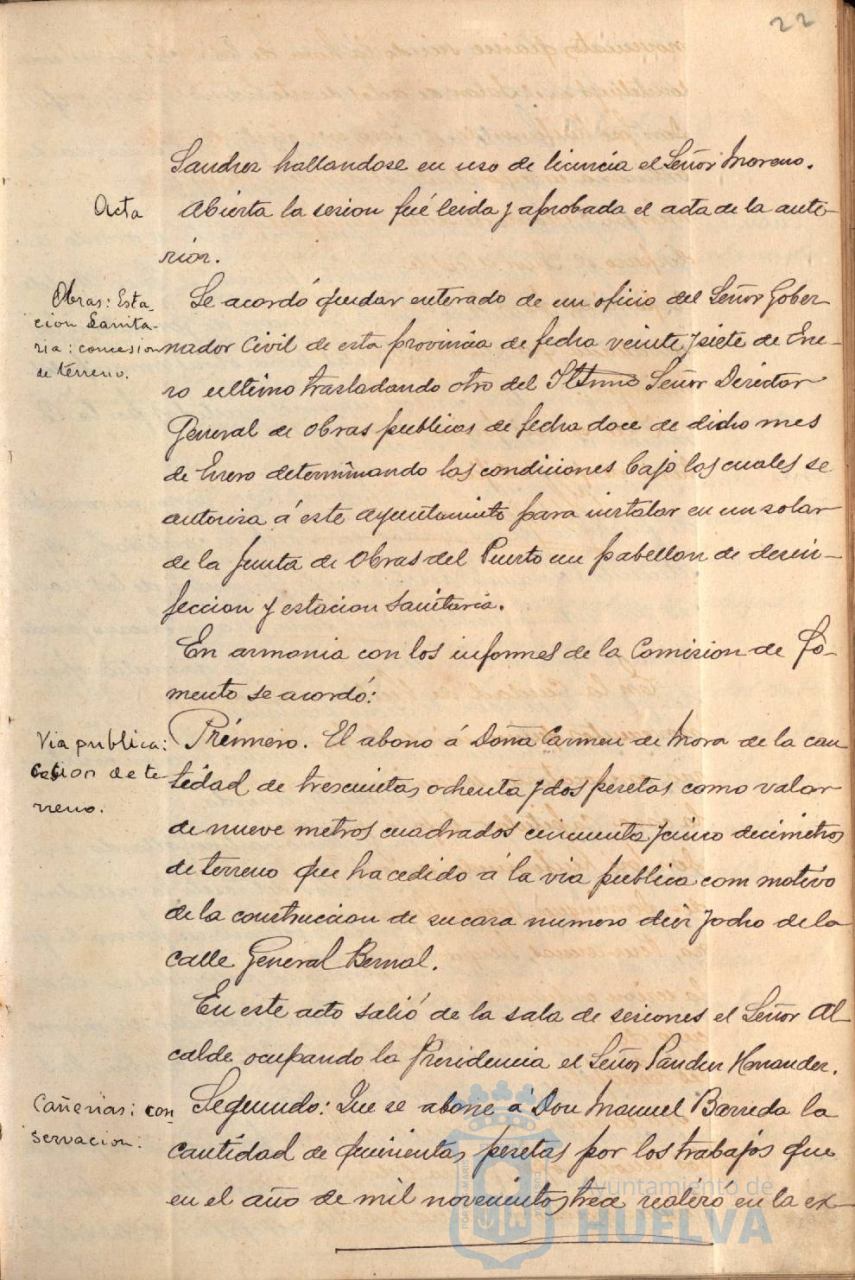 22
Sanchez hallandose en uso de licencia el Señor Moreno.
Acta
Abierta la sesion fué leida y aprobada el acta de la ante-
rior.
Obras: Esta-
cion Sanita-
ria: concesion
de terreno.
Se acordó quedar enterado de un oficio del Señor Gober-
nador Civil de esta provincia de fecha veinte y siete de Ene-
ro ultimo trasladando otro del Iltmo Señor Director
General de Obras publicas de fecha doce de dicho mes
de Enero determinando las condiciones bajo las cuales se
autoriza á este ayuntamiento para instalar en un solar
de la Junta de Obras del Puerto un pabellon de desin-
feccion y estacion sanitaria.
En armonia con los informes de la Comision de Fo-
mento se acordó:
Via publica:
cesion de te-
rreno.
Primero. El abono á Doña Carmen de Mora de la can-
tidad de trescientas ochenta y dos pesetas como valor
de nueve metros cuadrados cincuenta y cinco decimetros
de terreno que ha cedido á la via publica com motivo
de la construccion de su casa numero diez y ocho de la
calle General Bernal.
En este acto salió de la sala de sesiones el Señor Al-
calde ocupando la Presidencia el Señor Sanchez Hernandez.
Cañerias: con
servacion:
Segundo: Que se abone á Don Manuel Barreda la
cantidad de quinientas pesetas por los trabajos que
en el año de mil novecientos trece realizó en la ex-
Ayuntamiento de
HUELVA